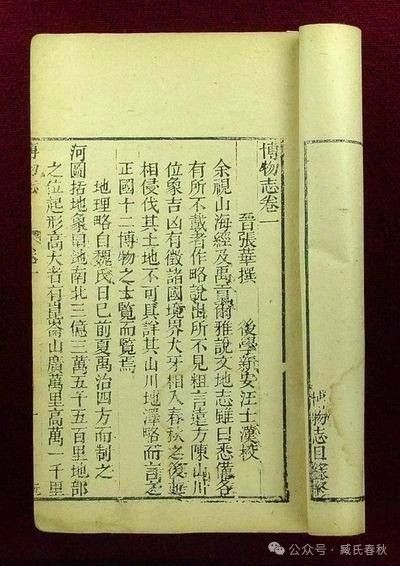 博物志目錄終
博物志卷一
晉張華撰 後學新安汪士漢校
余視山海經及禹貢爾雅說文地志雖曰悉備各
有所不載者作略說出所不見粗言遠方陳山川
位象吉凶有徵諸國境界犬牙相入春秋之後並
相侵伐其土地不可具詳其山川地澤略而言之
正國十二博物之士覽而覽焉
地理略自魏氏日已前夏禹治四方而制之
河圖括地象曰地南北三億三萬五千五百里地部
之位起形高大者有崑崙山廣萬里高萬一千里
博物志
公众号·臧氏春秋